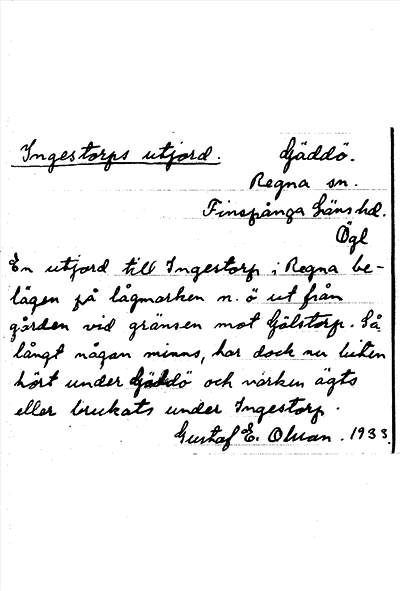 Ingestorps utjord.
Gäddö.
Regna sn.
Finspånga Läns hd.
Ögl
En utjord till Ingestorp i Regna be-
lägen på lågmarken n. ö ut från
gården vid gränsen mot Gölstorp. Så
långt någon minns, har dock nu biten
hört under Gäddö och varken ägts
eller brukats under Ingestorp.
Gustaf E. Olsson. 1933.